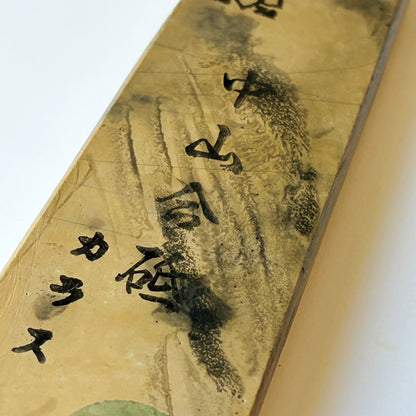 中山合砥
カラス